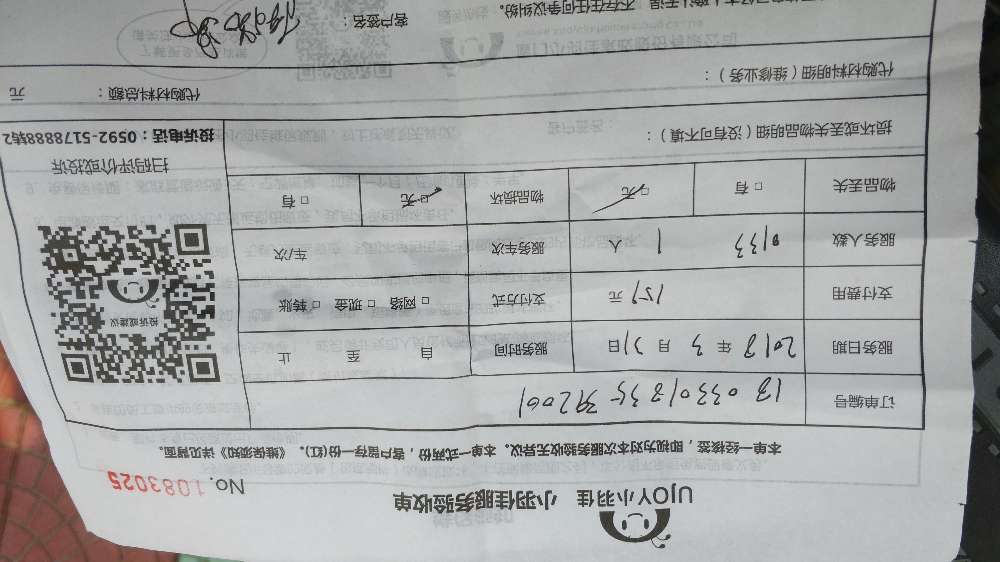 UJOY小羽佳 小羽佳服务验收单
No. 1083025
本单一经核签，即视为对本次服务验收无异议。本单一式两份，客户留存一份(红)。《维保须知》详见背面。
订单编号
服务日期 2018年3月31日 服务时间 自 至 止
支付费用 151元 支付方式 □网络 □现金 □转账
服务人数 0133 1人 服务车次 车/次
物品丢失 □有 □无 物品损坏 □无 □有
投诉或建议
扫码评价或投诉
投诉电话：0592-5178888转2
损坏或丢失物品明细（没有可不填）：
代购材料明细（维修业务）：
代购材料总额： 元
不存在任何争议纠纷。
客户签名：